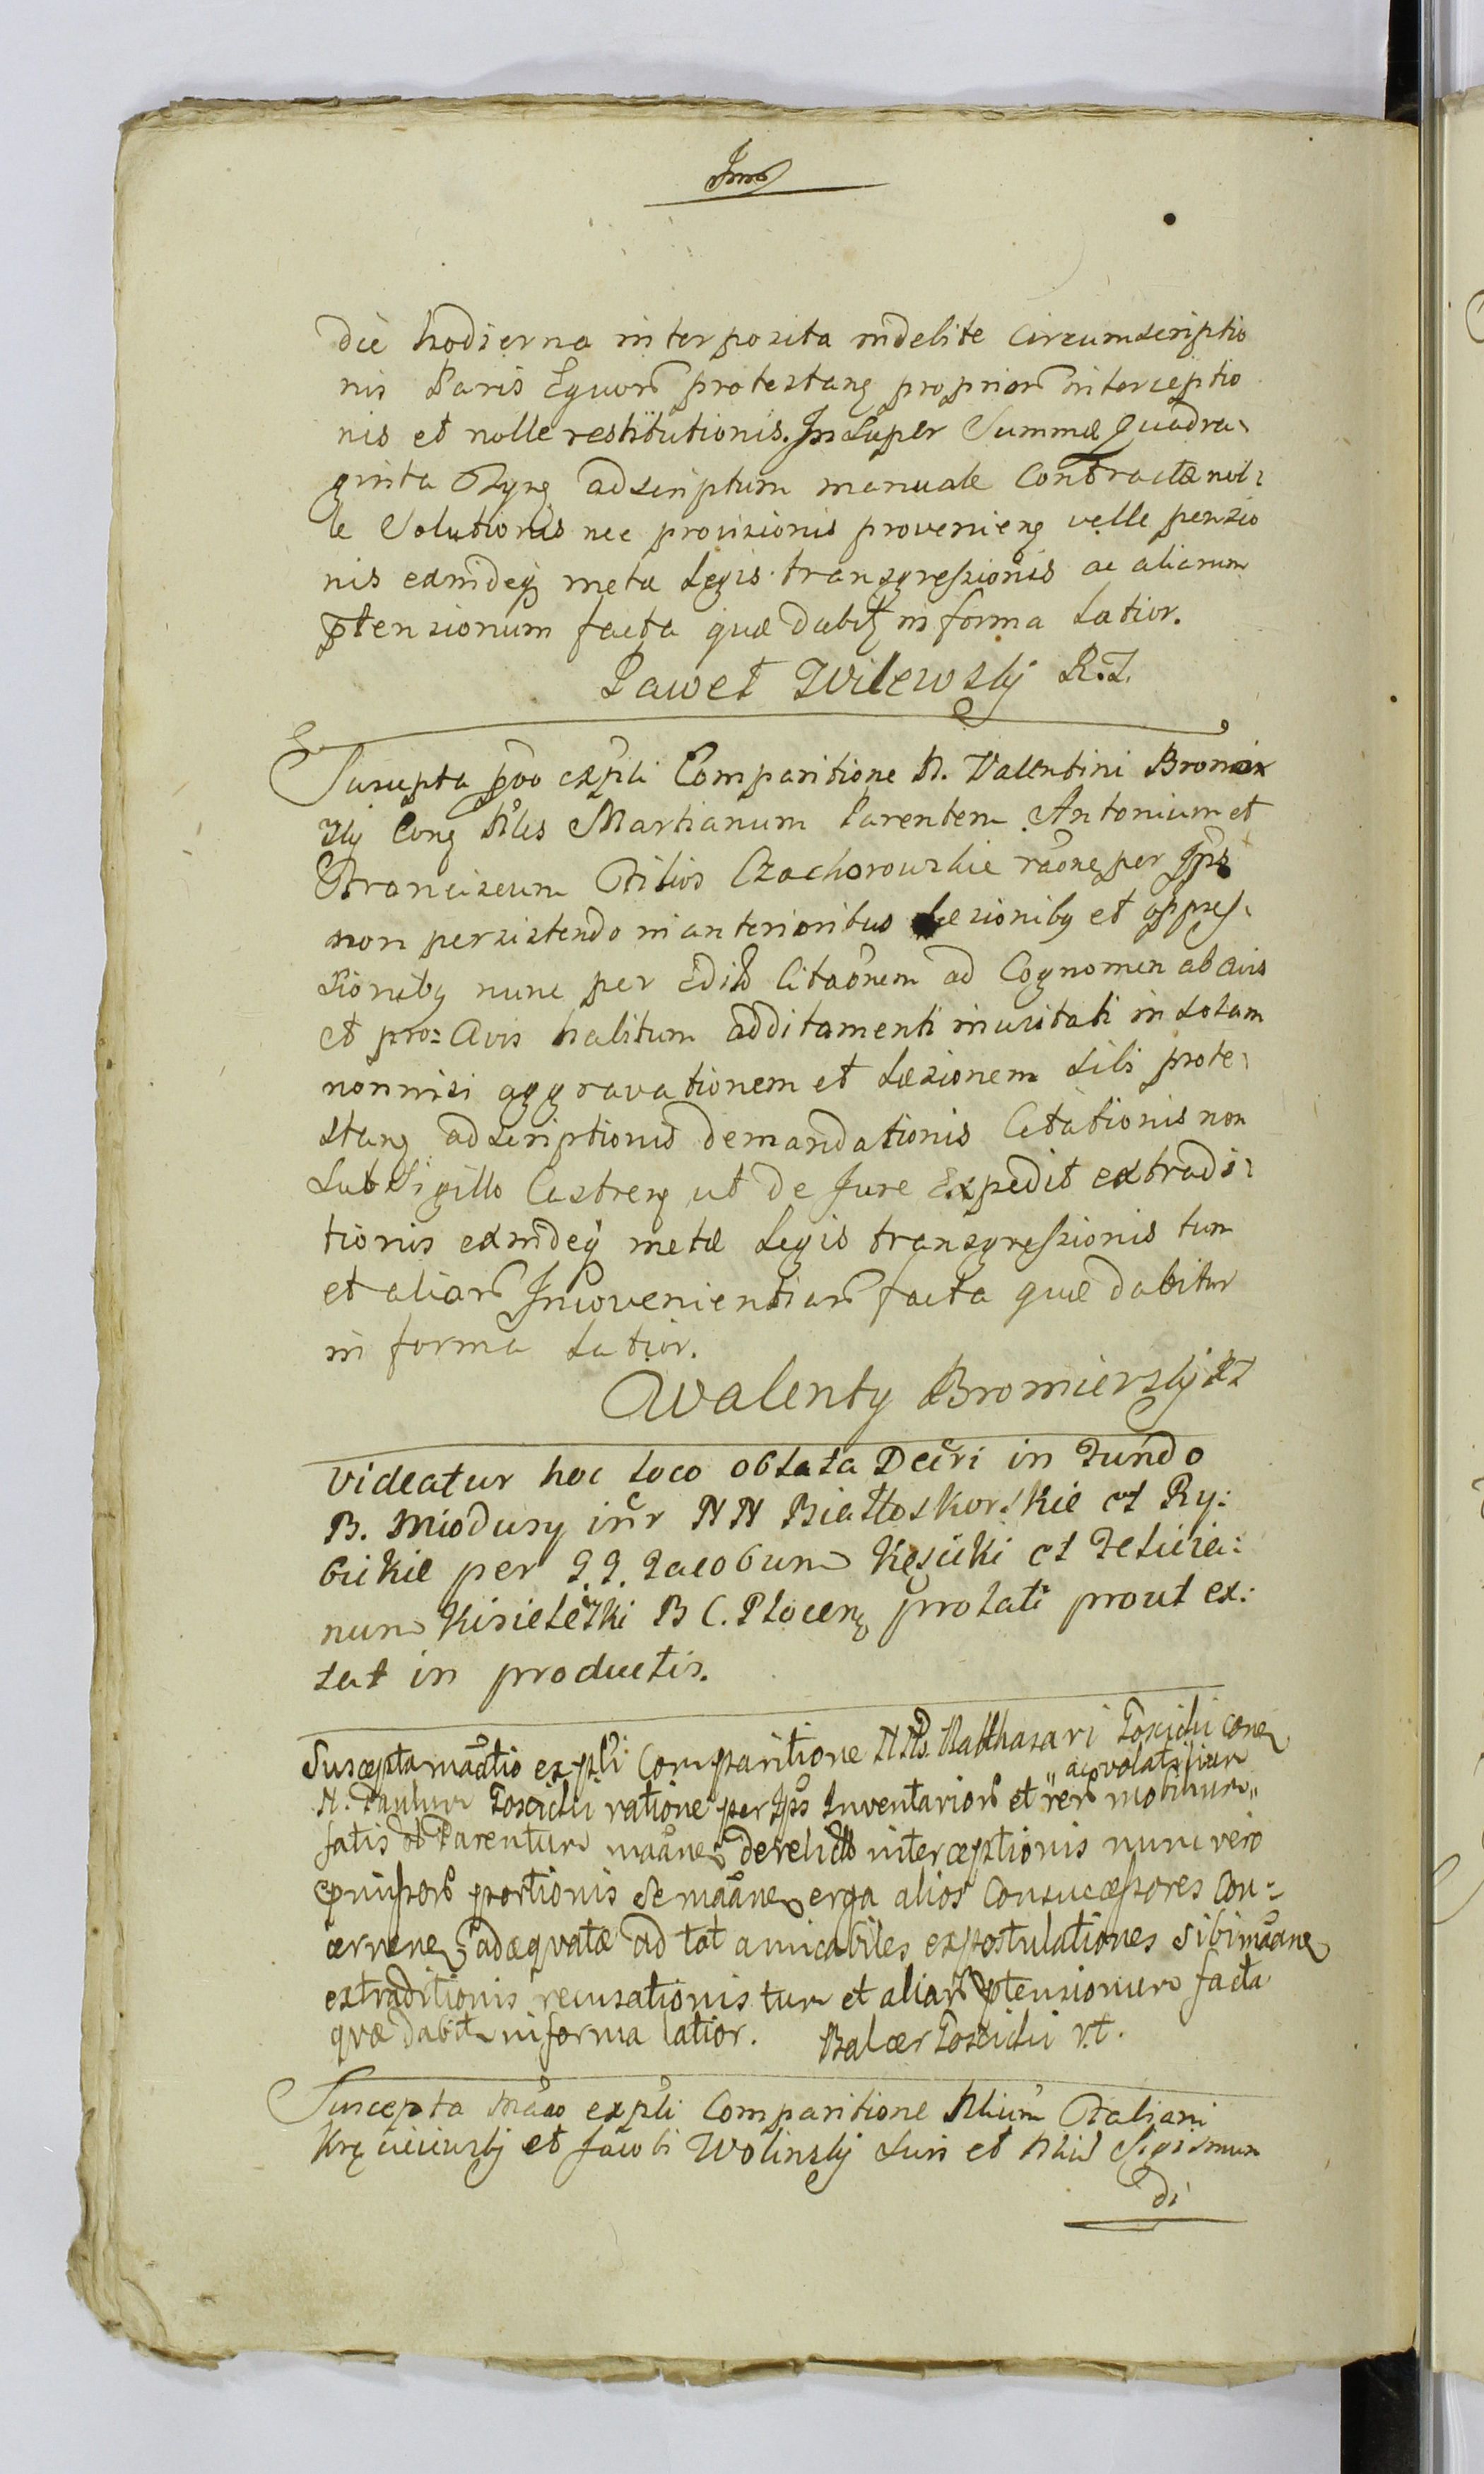 die hodierna interposita indebite circumscriptio
nis Paris Equorū protestanẹ propriorū interceptio
nis et nolle restitutionis. In super Summæ Quadra-
ginta Tynẹ adscriptum manuale Contractæ nol-
le Solutionis nec provisionis provenienẹ velle pensio
nis exindeq́ metæ Legis transgressionis ac aliarum
ptensionum facta quæ dabitʒ in forma latior.
Paweł Zvilewskij R.Z.
Suscepta pōo expłi Comparitione N. Valentini Bromirz
skij Conẹ Nłes Martianum Parentem Antonium et
Franciscum Filios Czachorowskie rāone per Ipś
non persistendo in anterioribus læsionibꝫ et oppres-
sionibꝫ nunc per Edito Citāonem ad Cognomen ab avis
et pro= Avis habitum additamenti inusitati in solam
nonnisi aggravationem et læsionem sibi prote-
stanẹ adscriptionis demandationis Citationis non
Sub Sigillo Castrenẹ ut de Jure Expedit extradi-
tionis exindeq́ metæ Legis transgressionis tum
et aliarū Inconvenientiarū facta quæ dabitur
in forma latior.
Walenty Bromierskij RZ
Videatur hoc loco oblata Decri in Fundo
B. Miodusy intr NN Białłoskorskie et Ry:
bickie per G.G. Jacobum Kęsicki et Felicia:
num Kisieleski B C. Plocenẹ prolati prout ex:
tat in productis.
Suscepta māatio expłi Comparitione N Nłs. Balthasari Toscicki conẹ
N. Paulum Toscicki ratione per Ipś Inventariorū et „rerū mobilium„
„ac volatilium
fatis ob Parentum māanẹ derelictōrū interceptionis nunc vero
præmissorū portionis se māanẹ erga alios Consuccessores Con-
cernenẹ adæquatæ ad tot amicabiles expostulationes sibi māanẹ
extraditionis recusationis tum et aliarū ptensionum facta
quæ dabit in forma latior. Balcer Toscicki r.t.
Suscepta māao expłi Comparitione Nłium Faliani
Kręciewskij et Jacobi Wolinskij Suis et Nłis Sigismun
di